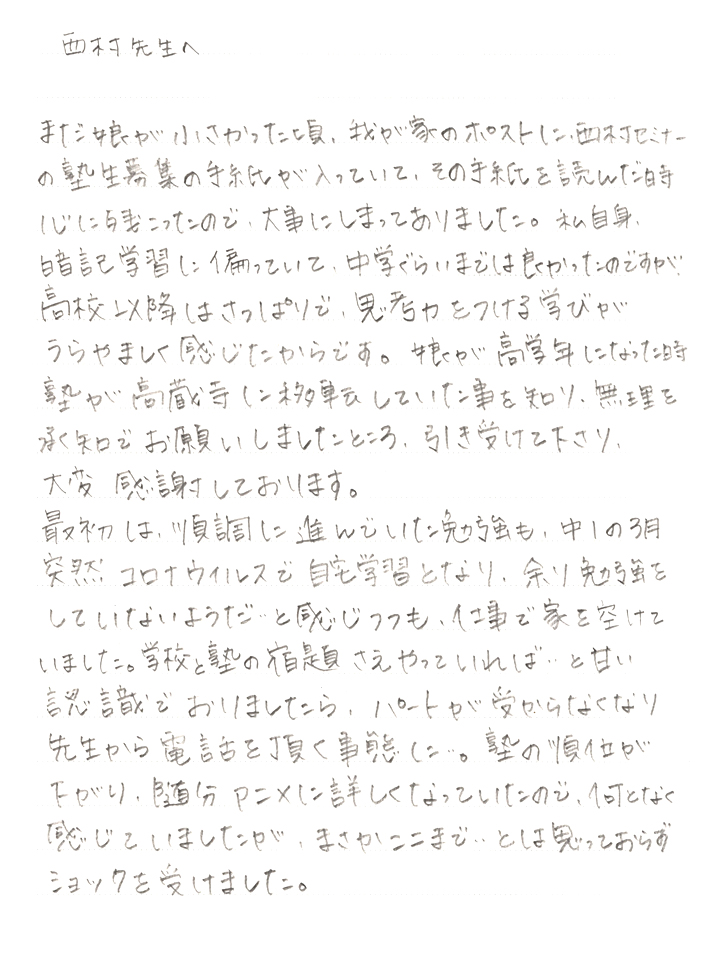 西村先生へ
まだ娘が小さかった頃、我が家のポストに、西村セミナー
の塾生募集の手紙が入っていて、その手紙を読んだ時
心に残ったので、大事にしまってありました。私自身、
暗記学習に偏っていて、中学ぐらいまでは良かったのですが、
高校以降はさっぱりで、思考力をつける学びが
うらやましく感じたからです。娘が高学年になった時
塾が高蔵寺に移転していた事を知り、無理を
承知でお願いしましたところ、引き受けて下さり、
大変感謝しております。
最初は、順調に進んでいた勉強も、中1の3月
突然コロナウイルスで自宅学習となり、余り勉強を
していないようだ‥と感じつつも、仕事で家を空けて
いました。学校と塾の宿題さえやっていれば‥と甘い
認識でおりましたら、パートが受からなくなり
先生から電話を頂く事態に‥。塾の順位が
下がり、随分アニメに詳しくなっていたので、何となく
感じていましたが、まさかここまで‥とは思っておらず
ショックを受けました。